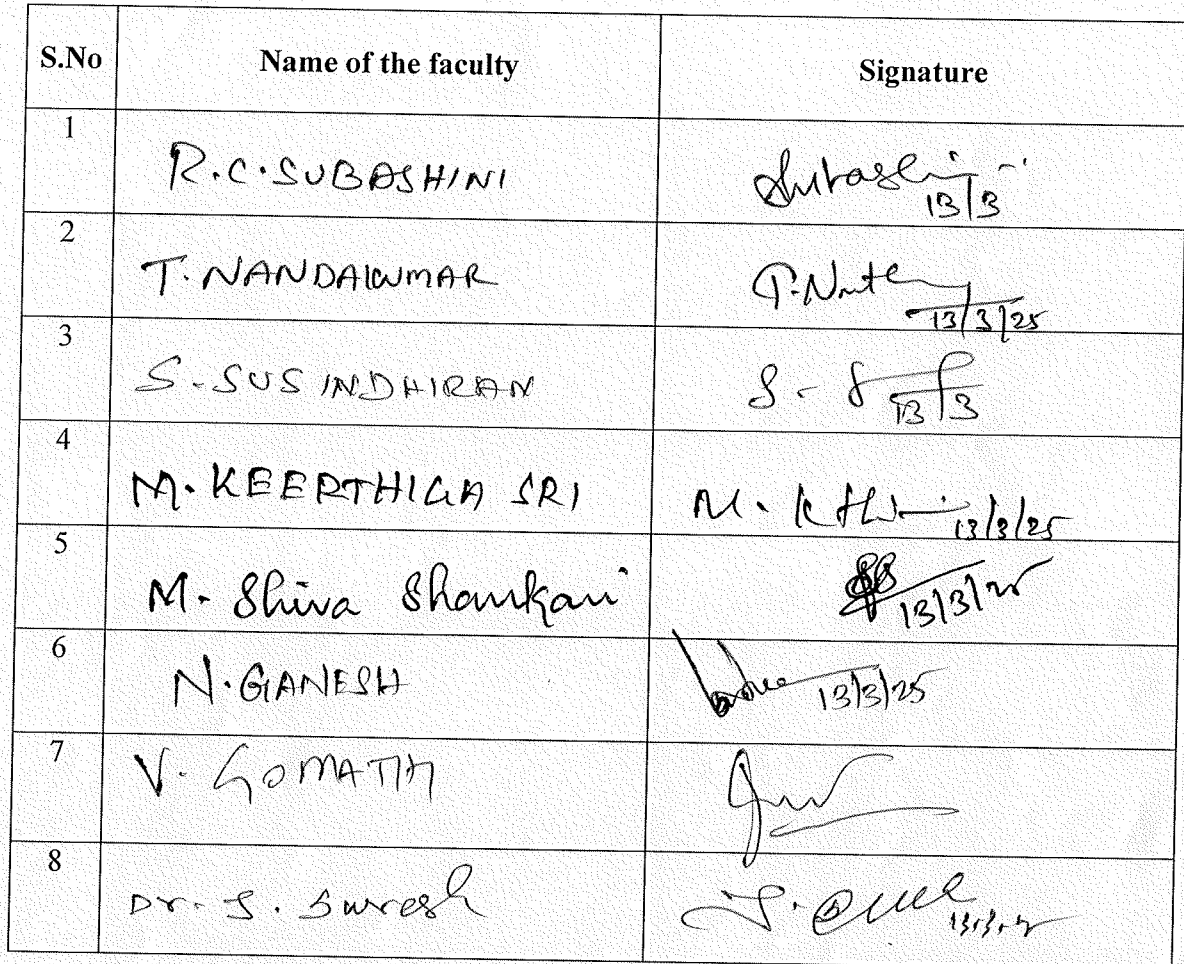 S.No Name of the faculty Signature
1 R.C.SUBASHINI Subashini 13/3
2 T.NANDAKUMAR 13/3/25
3 S-SUSINDHIRAN 13/3
4 M.KEERTHIGA SRI 13/3/25
5 M. Shiva Shankari 13/3/25
6 N.GANESH 13/3/25
7 V. GOMATHI
8 Dr. S. Suresh